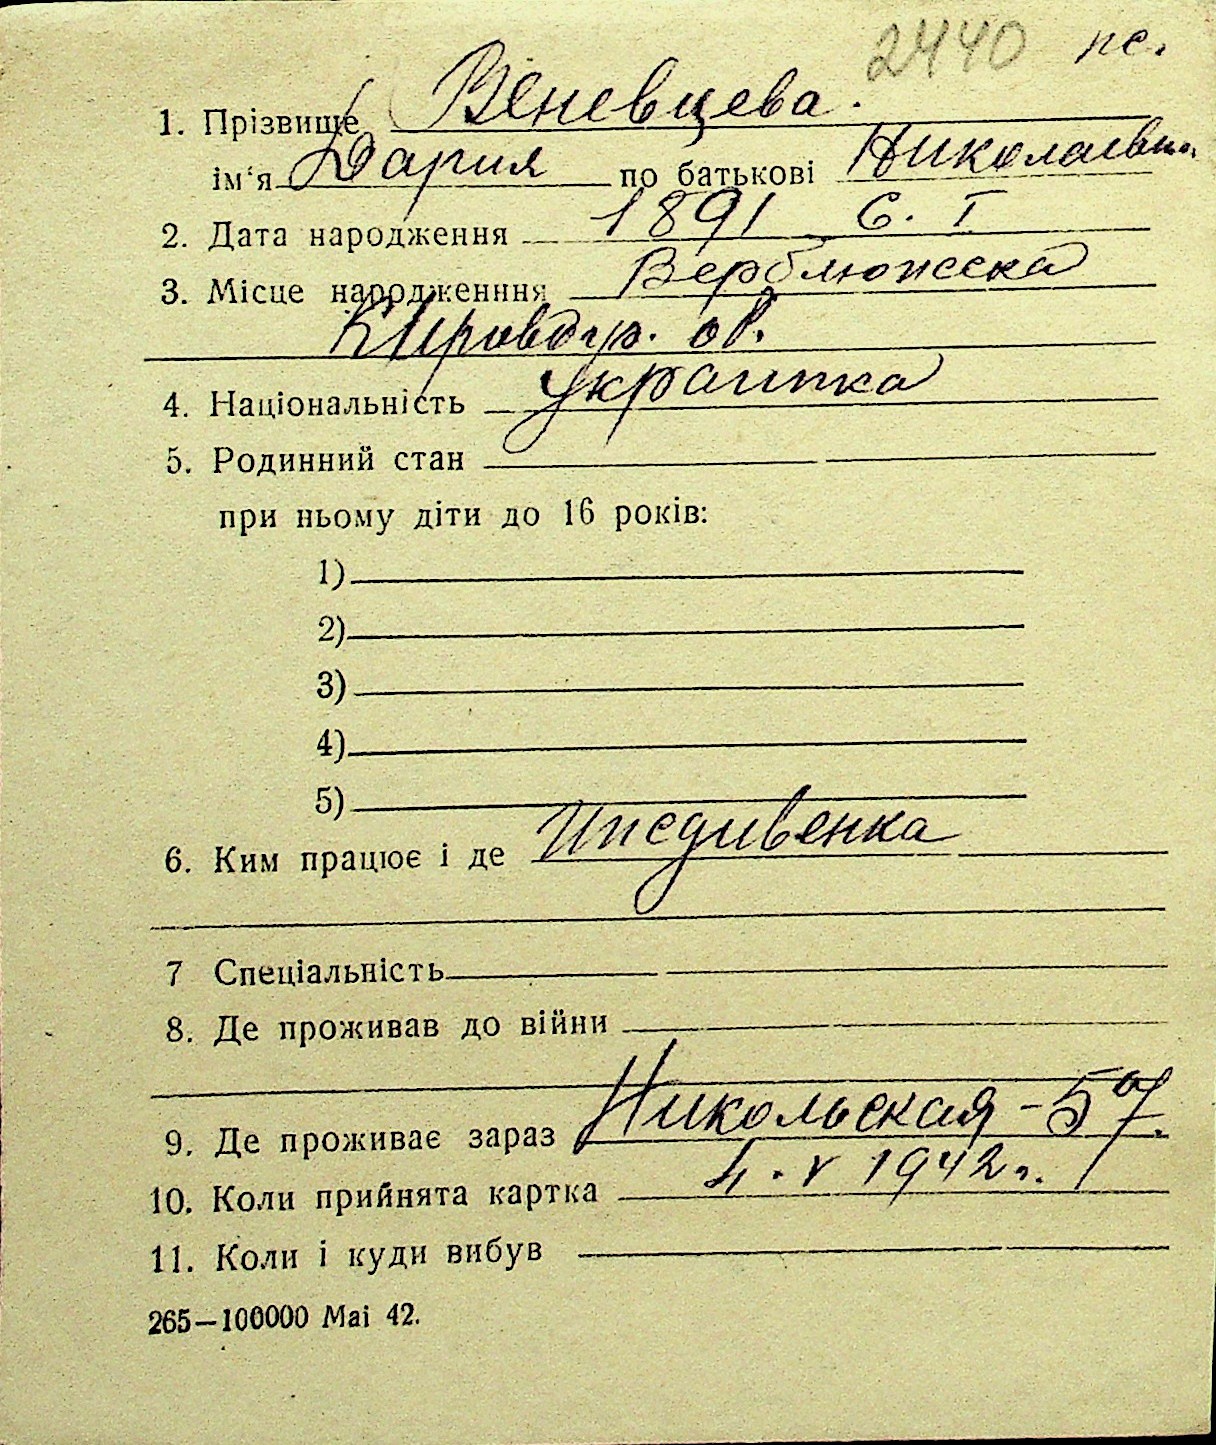 2440 пе.
1. Прізвище Веневцева.
ім‘я Дария по батькові Николаевна
2. Дата народження 1891 6. I
3. Місце народженння Верблюжска
Кировогр. об.
4. Національність украинка
5. Родинний стан
при ньому діти до 16 років:
1)
2)
3)
4)
5)
6. Ким працює і де Ижедивенка
7 Спеціальність
8. Де проживав до війни
9. Де проживає зараз Никольская - 57
10. Коли прийнята картка 4. V 1942 г.
11. Коли і куди вибув
265—100000 Маі 42.